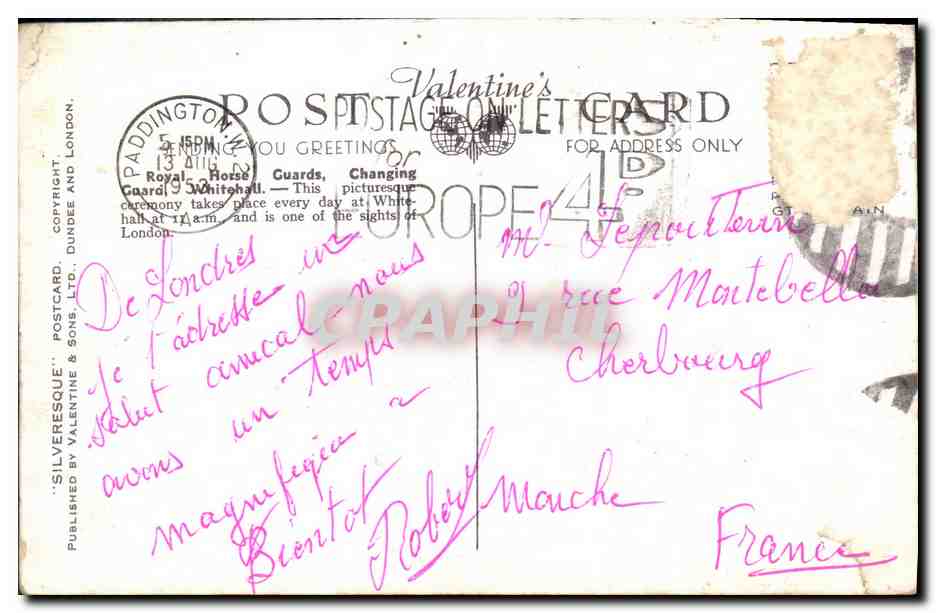 Valentine's
POST CARD
POSTAGE ON LETTERS
for
EUROPE 4D.
PADDINGTON.W.2
5 15PM
13 AUG
A
SENDING YOU GREETINGS
FOR ADDRESS ONLY
Royal Horse Guards, Changing
Guard, Whitehall. — This picturesque
ceremony takes place every day at White-
hall at 11 a.m. and is one of the sights of
London.
"SILVERESQUE" POSTCARD. COPYRIGHT.
PUBLISHED BY VALENTINE & SONS, LTD., DUNDEE AND LONDON.
De Londres
je t'adresse un
salut amical, nous
avons un temps
magnifique
Bientot
Robert
Mr
2 rue Montebello
Cherbourg
Manche
France
CRAPHIL